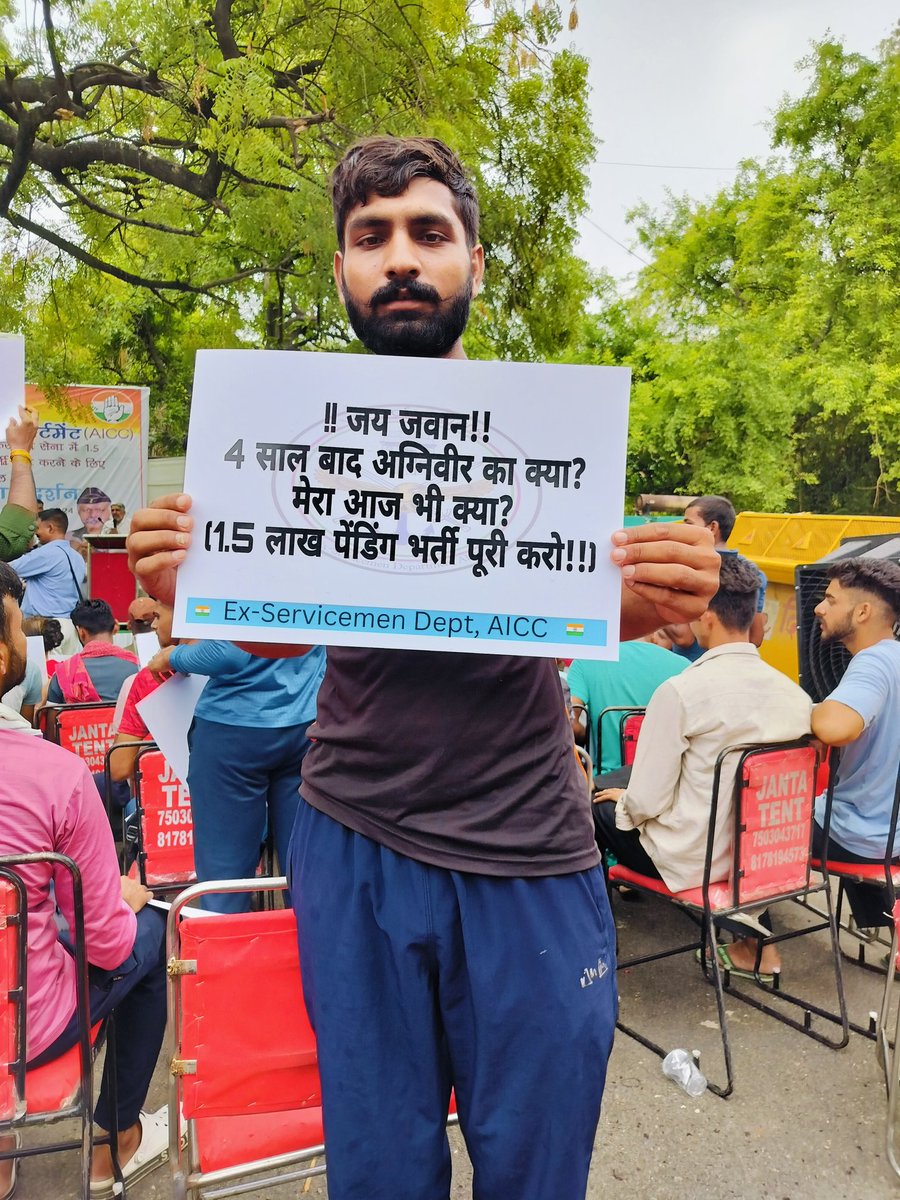 !! जय जवान!!
4 साल बाद अग्निवीर का क्या?
मेरा आज भी क्या?
(1.5 लाख पेंडिंग भर्ती पूरी करो!!)
Ex-Servicemen Dept, AICC
र्टमेंट (AICC)
सेना में 1.5
करने के लिए
दर्शन
JANTA
TENT
JANTA
TENT
7503043717
8178194573